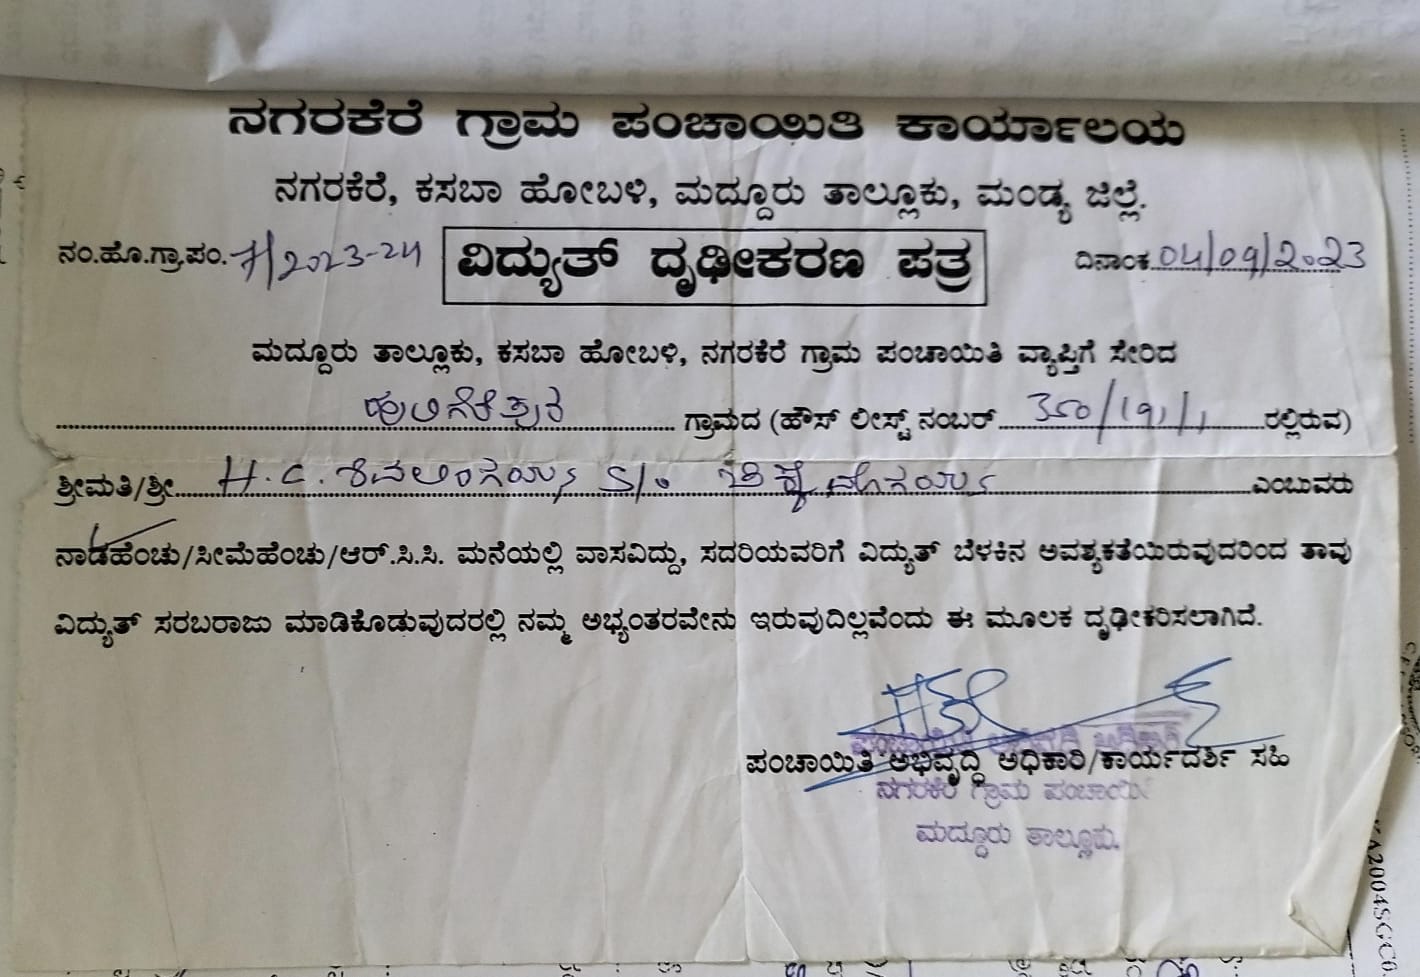 ನಗರಕೆರೆ ಗ್ರಾಮ ಪಂಚಾಯಿತಿ ಕಾರ್ಯಾಲಯ
ನಗರಕೆರೆ, ಕಸಬಾ ಹೋಬಳಿ, ಮದ್ದೂರು ತಾಲ್ಲೂಕು, ಮಂಡ್ಯ ಜಿಲ್ಲೆ.
ನಂ.ಹೊ.ಗ್ರಾ.ಪಂ. 7/2023-24 ವಿದ್ಯುತ್ ದೃಢೀಕರಣ ಪತ್ರ ದಿನಾಂಕ 04/09/2023
ಮದ್ದೂರು ತಾಲ್ಲೂಕು, ಕಸಬಾ ಹೋಬಳಿ, ನಗರಕೆರೆ ಗ್ರಾಮ ಪಂಚಾಯಿತಿ ವ್ಯಾಪ್ತಿಗೆ ಸೇರಿದ
ಹುಲಿಗೆರೆಪುರ ಗ್ರಾಮದ (ಹೌಸ್ ಲೀಸ್ಟ್ ನಂಬರ್ 350/191/1 ರಲ್ಲಿರುವ)
ಶ್ರೀಮತಿ/ಶ್ರೀ H.C. ಶಿವಲಿಂಗಯ್ಯ S/o ಎಂಬುವರು
ನಾಡಹೆಂಚು/ಸೀಮೆಹೆಂಚು/ಆರ್.ಸಿ.ಸಿ. ಮನೆಯಲ್ಲಿ ವಾಸವಿದ್ದು, ಸದರಿಯವರಿಗೆ ವಿದ್ಯುತ್ ಬೆಳಕಿನ ಅವಶ್ಯಕತೆಯಿರುವುದರಿಂದ ತಾವು
ವಿದ್ಯುತ್ ಸರಬರಾಜು ಮಾಡಿಕೊಡುವುದರಲ್ಲಿ ನಮ್ಮ ಅಭ್ಯಂತರವೇನು ಇರುವುದಿಲ್ಲವೆಂದು ಈ ಮೂಲಕ ದೃಢೀಕರಿಸಲಾಗಿದೆ.
ಪಂಚಾಯಿತಿ ಅಭಿವೃದ್ಧಿ ಅಧಿಕಾರಿ
ಪಂಚಾಯಿತಿ ಅಭಿವೃದ್ಧಿ ಅಧಿಕಾರಿ/ಕಾರ್ಯದರ್ಶಿ ಸಹಿ
ನಗರಕೆರೆ ಗ್ರಾಮ ಪಂಚಾಯಿತಿ
ಮದ್ದೂರು ತಾಲ್ಲೂಕು.